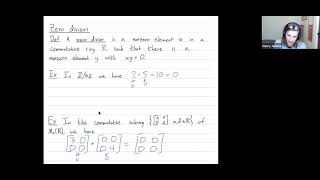 Zero divisors
Def A zero divisor is a nonzero element x in a
commutative ring R such that there is a
nonzero element y with xy=0.
Ex In Z/10Z we have 2 · 5 = 10 = 0
Ex In the commutative subring {[a 0
0 d] : a,d∈R} of
M₂(R), we have
[3 0
0 0] · [0 0
0 4] = [0 0
0 0]
Henry Adams